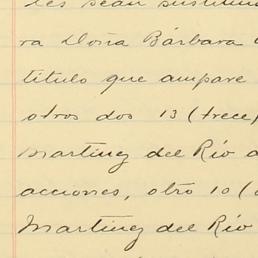 les sean sustitui
ra Doña Bárbara
título que ampare
otros dos 13 (trece)
Martinez del Río a
acciones, otro 10 (
Martinez del Río